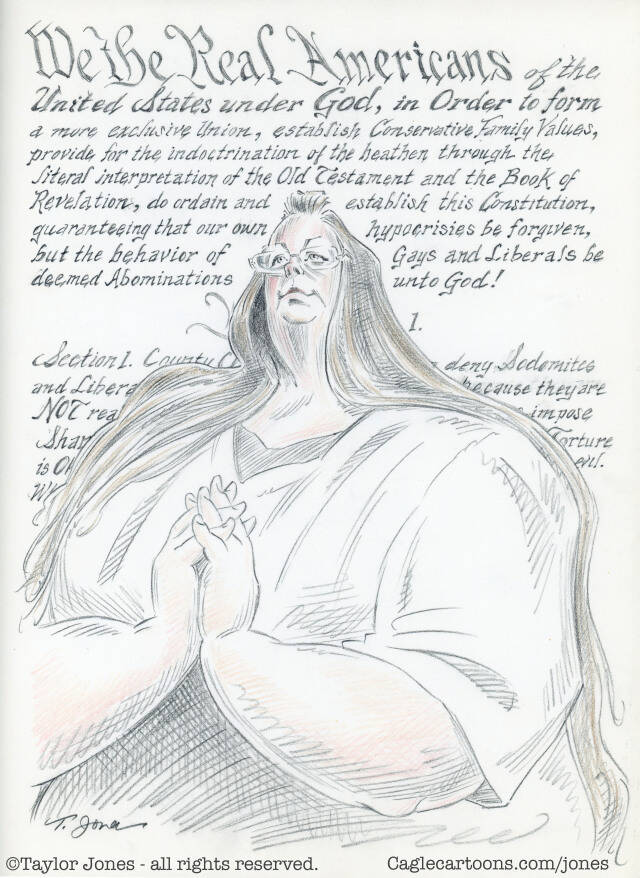 We the Real Americans of the
United States under God, in Order to form
a more exclusive Union, establish Conservative Family Values,
provide for the indoctrination of the heathen through the
literal interpretation of the Old Testament and the Book of
Revelation, do ordain and establish this Constitution,
guaranteeing that our own hypocrisies be forgiven,
but the behavior of Gays and Liberals be
deemed Abominations unto God!
1.
Section I. County deny Sodomites
and Libera because they are
NOT rea impose
Shar Torture
is
T. Jones
©Taylor Jones - all rights reserved. Caglecartoons.com/jones